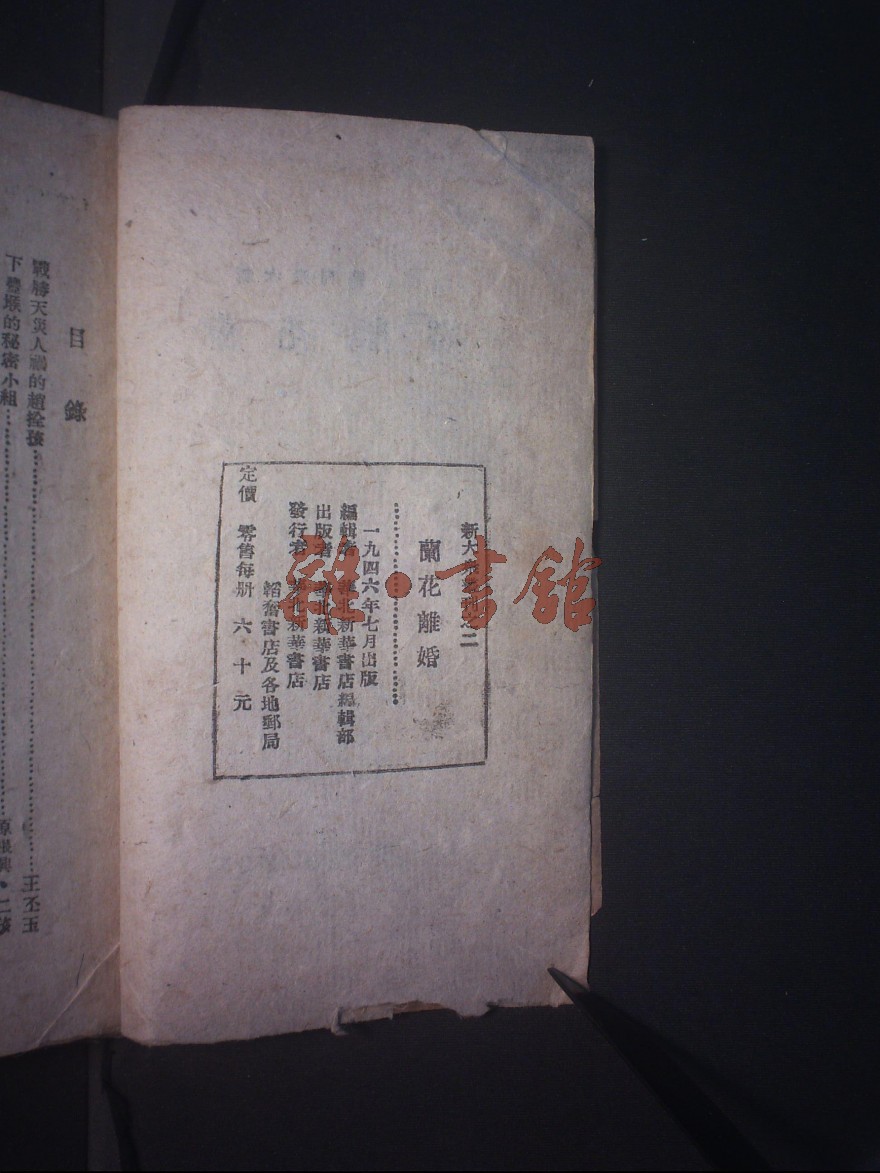 新大衆叢刊之二
蘭花離婚
一九四六年七月出版
編輯者 華北新華書店編輯部
出版者 華北新華書店
發行者 華北新華書店
韜奮書店及各地郵局
定價 零售每册 六·十元
目錄
戰勝天災人禍的趙拴孩 王丕玉
的秘密小組
雜·書館